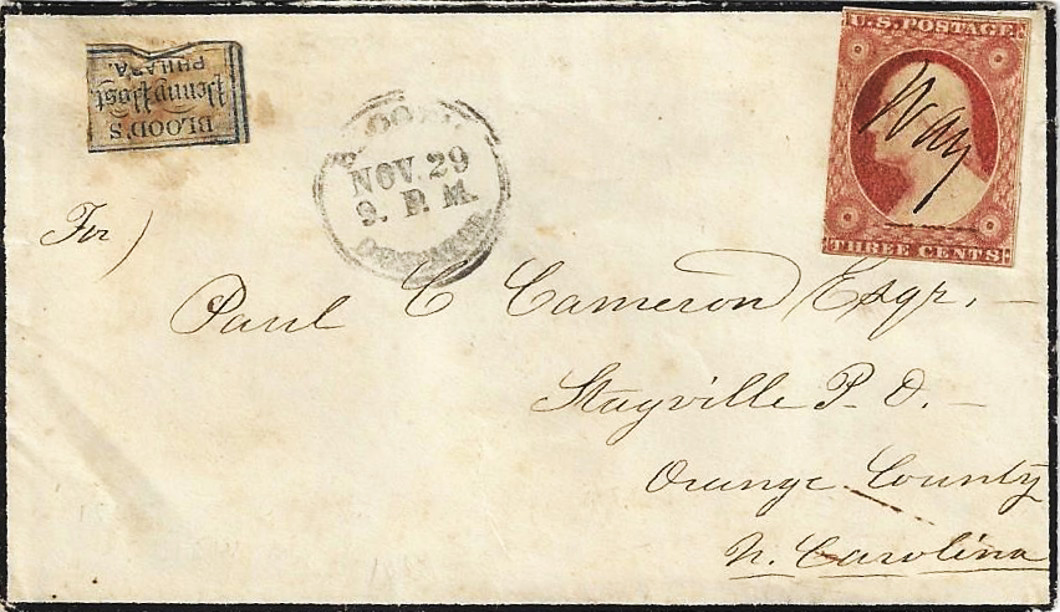 BLOOD'S
Penny Post
PHILADA.
NOV. 29
U.S. POSTAGE
Way
THREE CENTS
For)
Paul C Cameron Esqr. -
Stagville P. O. -
Orange County
N. Carolina